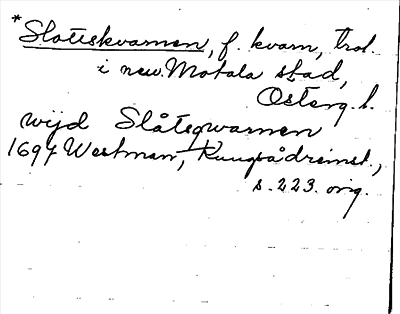 *Slottskvarnen, f. kvarn, trol.
i nuv. Motala stad,
Österg. l.
wijd Slåtzqwarnen
1697 Westman, Kungsådreinst.,
s. 223. orig.